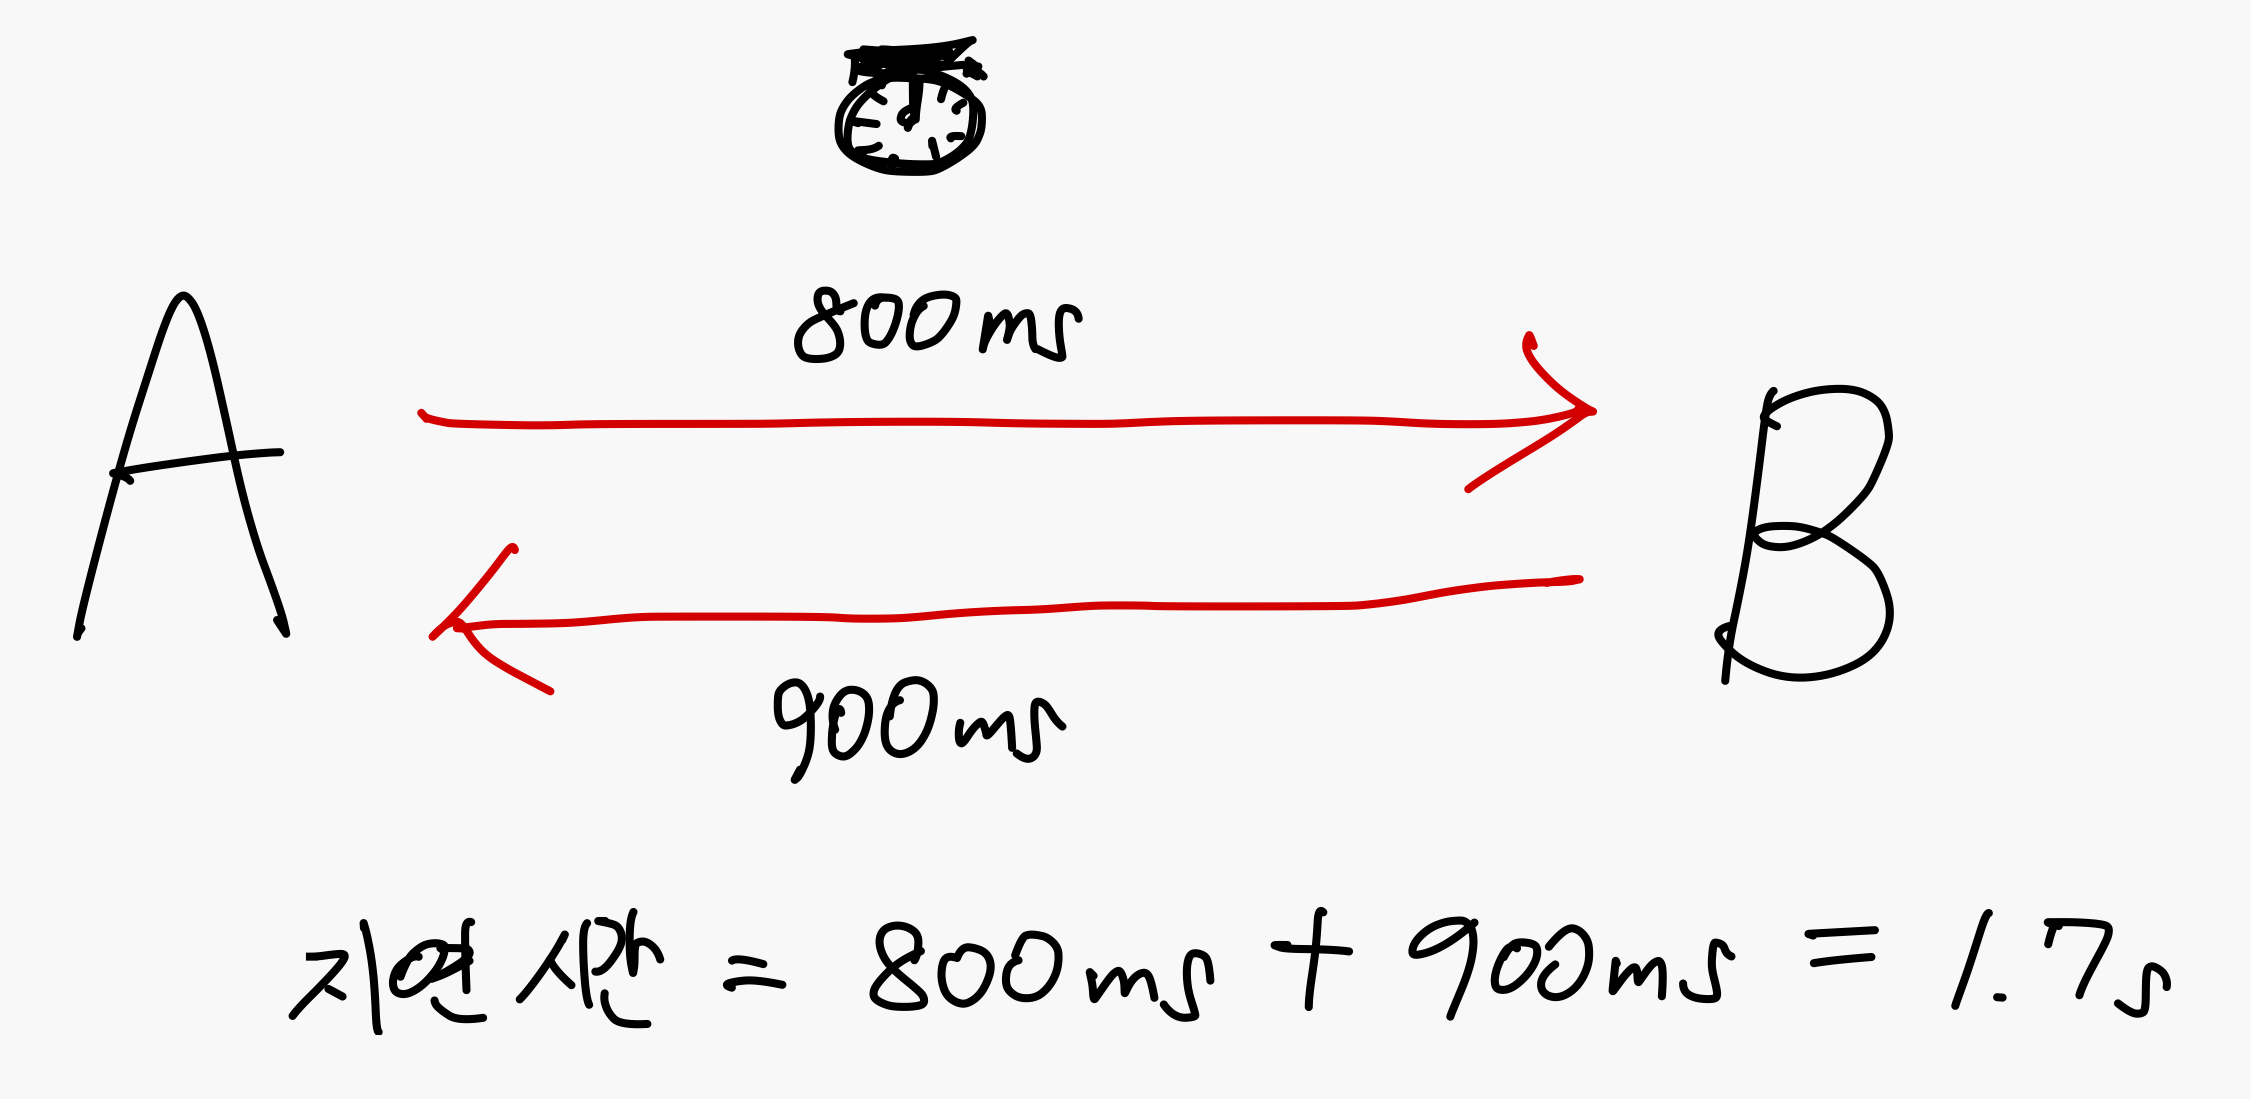 800ms
A
B
900ms
지연 시간 = 800ms + 900ms = 1.7s